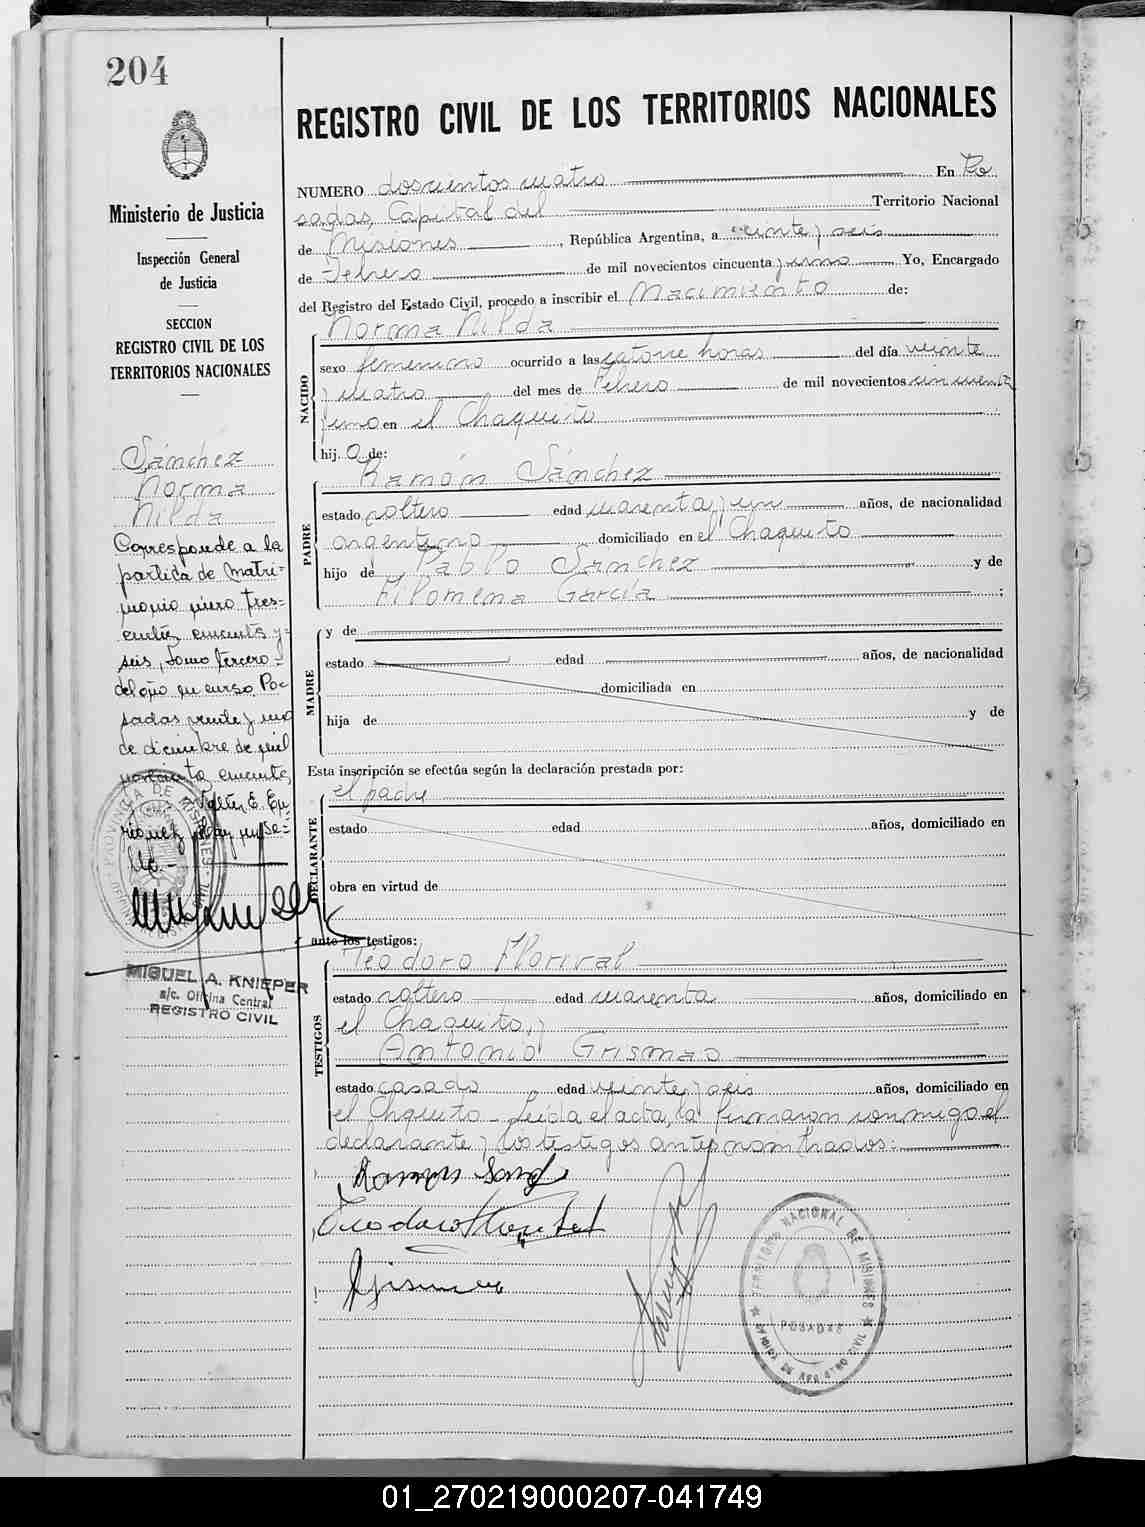 204
REGISTRO CIVIL DE LOS TERRITORIOS NACIONALES
Ministerio de Justicia
Inspección General
de Justicia
SECCION
REGISTRO CIVIL DE LOS
TERRITORIOS NACIONALES
NUMERO doscientos cuatro En Po
sadas, Capital del Territorio Nacional
de Misiones, República Argentina, a veinte y seis
de Febrero de mil novecientos cincuenta y uno Yo, Encargado
del Registro del Estado Civil, procedo a inscribir el Nacimiento de:
Norma Nilda
NACIDO
sexo femenino ocurrido a las catorce horas del día veinte
y cuatro del mes de Febrero de mil novecientos cincuenta
y uno en el Chaquito
hij a de:
PADRE
Ramón Sánchez
estado soltero edad cuarenta y un años, de nacionalidad
argentino domiciliado en el Chaquito
hijo de Pablo Sánchez y de
Filomena García ;
MADRE
y de
estado edad años, de nacionalidad
domiciliada en
hija de y de
Esta inscripción se efectúa según la declaración prestada por:
DECLARANTE
el padre
estado edad años, domiciliado en
obra en virtud de
ante los testigos:
TESTIGOS
Teodoro Florival
estado soltero edad cuarenta años, domiciliado en
el Chaquito, y
Antonio Grismao
estado casado edad veinte y seis años, domiciliado en
el Chquito - Leida el acta, la firmaron conmigo el
declarante y los testigos antes nombrados:
Sánchez
Norma
Nilda
Corresponde a la
partida de matri-
monio número tres-
cientos cincuenta y
seis, tomo tercero
del año en curso. Po-
sadas veinte y uno
de diciembre de mil
MIGUEL A. KNIEPER
a/c. Oficina Central
REGISTRO CIVIL
PROVINCIA DE MISIONES
TERRITORIO NACIONAL DE MISIONES
POSADAS
OFICINA DE REGISTRO CIVIL
01_270219000207-041749